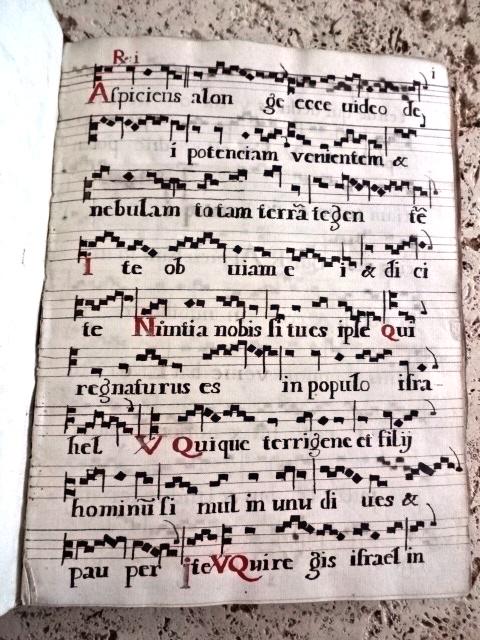 R. i i
Aspiciens a lon ge ecce uideo de
i potenciam venientem &
nebulam totam terrã tegen tẽ
I te ob uiam e i & di ci
te Nuntia nobis si tu es ipse Qui
regnaturus es in populo isra-
hel V Quique terrigene et filij
hominũ si mul in unu di ues &
pau per ite V Qui re gis israel in